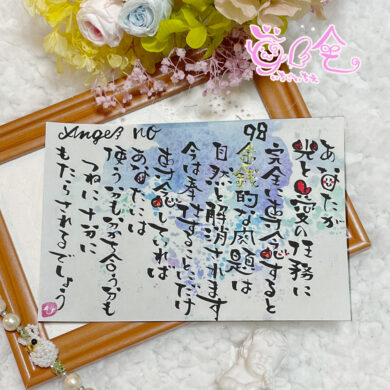 Angel no
98
あなたが
光と愛の任務に
完全に専念すると
金銭的な問題は
自然と解消されます
今は奉仕することだけ
専念していれば
あなたには
使う分も分ち合う分も
つねに十分に
もたらされるでしょう